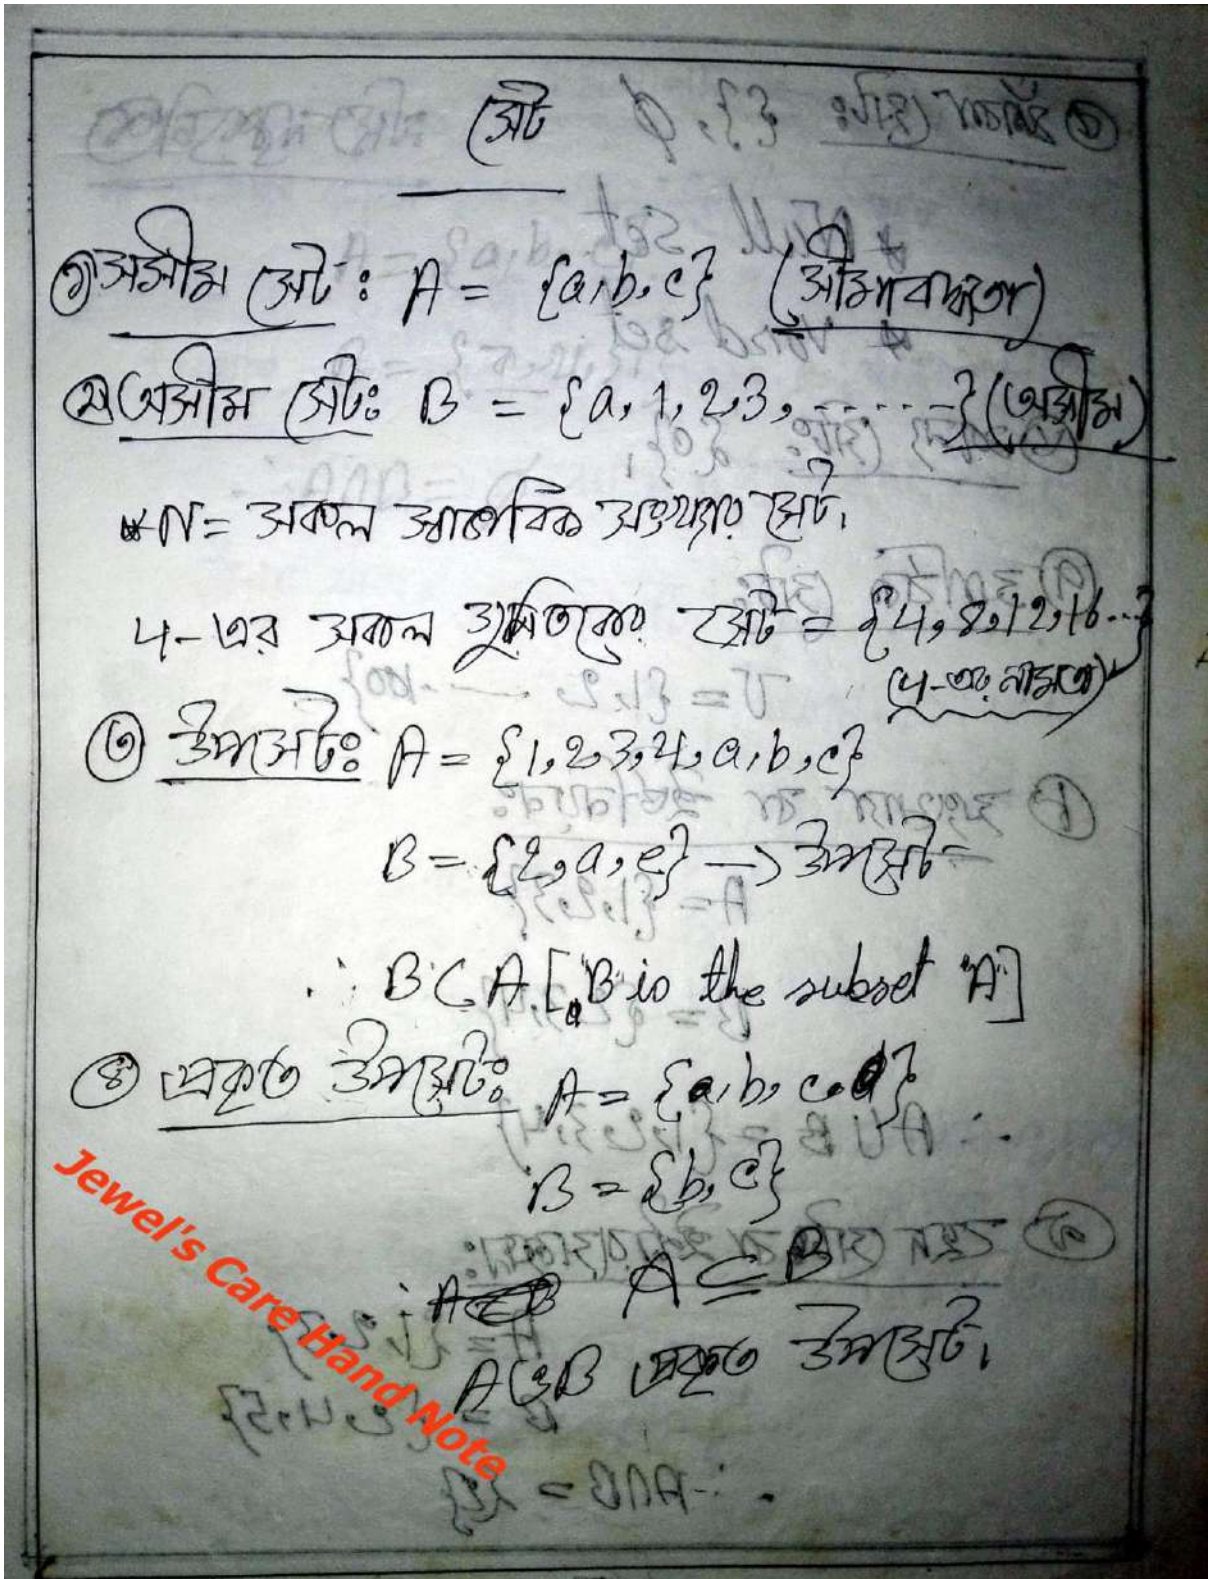 সেট
১) সসীম সেট: A = {a, b, c} (সীমাবদ্ধতা)
২) অসীম সেট: B = {a, 1, 2, 3, ......} (অসীম)
* N = সকল স্বাভাবিক সংখ্যার সেট।
4-এর সকল গুণিতকের সেট = {4, 8, 12, 16...}
(4-এর নামতা)
৩) উপসেট: A = {1, 2, 3, 4, a, b, c}
B = {2, a, c} → উপসেট
∴ B ⊂ A [B is the subset "A"]
৪) প্রকৃত উপসেট: A = {a, b, c, d}
B = {b, c}
∴ A ⊆ B
A ও B প্রকৃত উপসেট।
Jewel's Care Hand Note